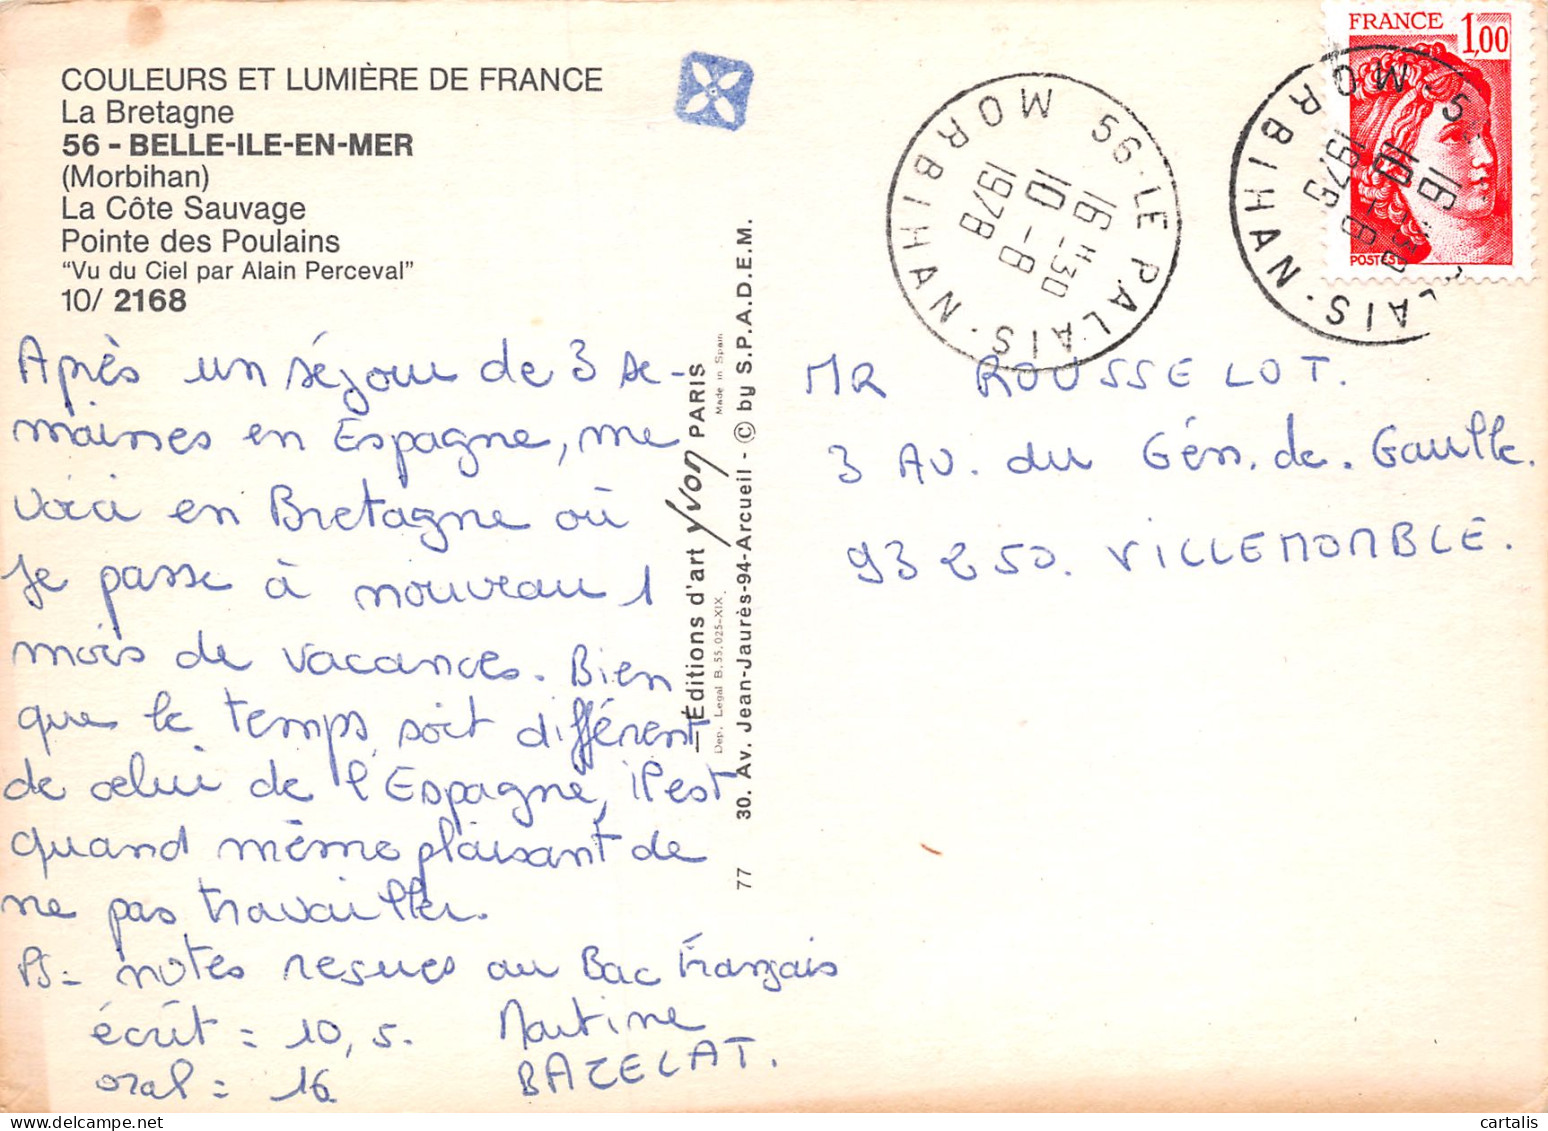 COULEURS ET LUMIÈRE DE FRANCE
La Bretagne
56 - BELLE-ILE-EN-MER
(Morbihan)
La Côte Sauvage
Pointe des Poulains
"Vu du Ciel par Alain Perceval"
10/ 2168
Après un séjour de 3 se-
maines en Espagne, me
voici en Bretagne où
je passe à nouveau 1
mois de vacances. Bien
que le temps soit différent
de celui de l'Espagne, il est
quand même plaisant de
ne pas travailler.
PS = notes resçues au Bac Français
écrit = 10,5.
oral = 16
Martine
BAZELAT.
Éditions d'art Yvon PARIS
Dep. Legal B. 55.025-XIX
Made in Spain
77 30. Av. Jean-Jaurès-94-Arcueil - © by S.P.A.D.E.M.
56 · LE PALAIS · MORBIHAN
16 H 30
10 - 8
1978
FRANCE 1,00
POSTES
MORBIHAN · 
16 H 30
10 - 8
1978
MR ROUSSELOT.
3 AV. du Gén. de. Gaulle.
93250. VILLEMOMBLE.
cartalis